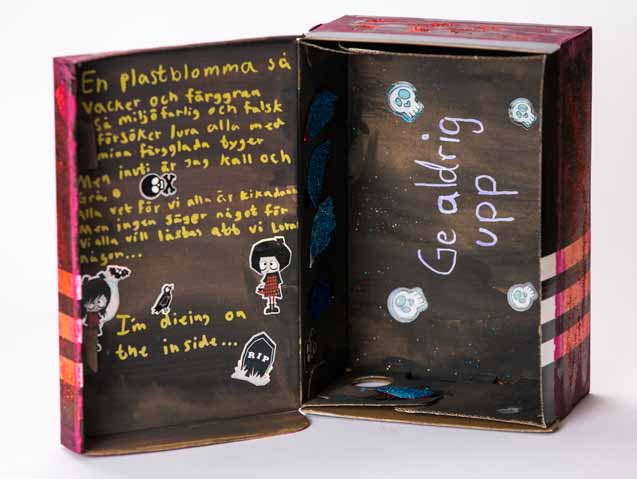 En plastblomma så
vacker och färggran
Så miljöfarlig och falsk
försöker lura alla med
mina färgglada tyger
Men inuti är jag kall och
Grå.
Alla vet för vi alla är likadana
Men ingen säger något för
Vi alla vill låtsas att vi lurat
någon...
I'm dieing on
the inside...
RIP
Ge aldrig
upp